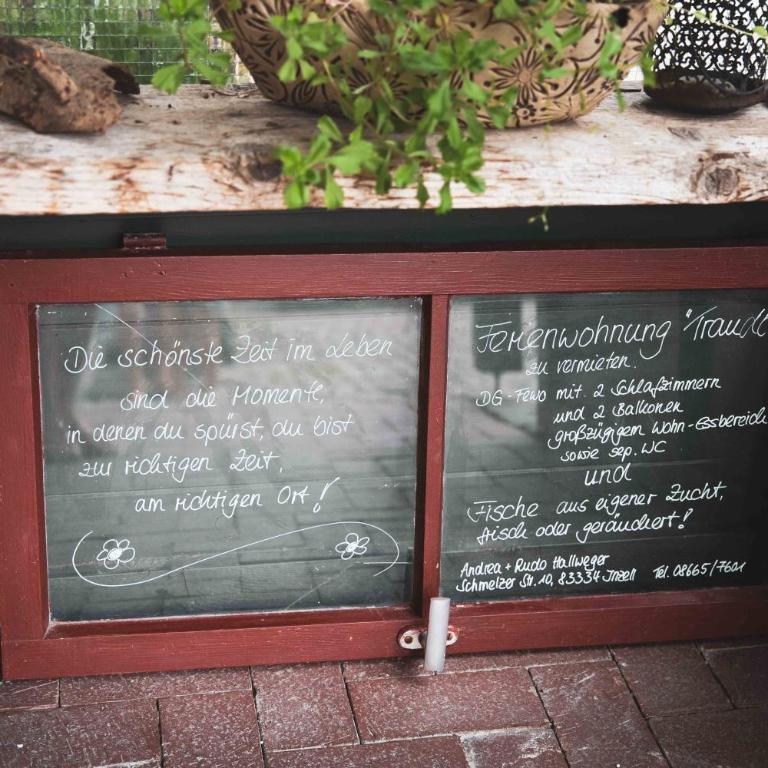 Die schönste Zeit im Leben
sind die Momente,
in denen du spürst, du bist
zur richtigen Zeit,
am richtigen Ort!
Ferienwohnung "Traudl
zu vermieten.
DG-Fewo mit 2 Schlafzimmern
und 2 Balkonen
großzügigem Wohn-Essbereich
sowie sep. WC
und
Fische aus eigener Zucht,
frisch oder geräuchert!
Andrea + Rudo Hallweger
Schmelzer Str. 10, 83334 Inzell Tel. 08665/7601